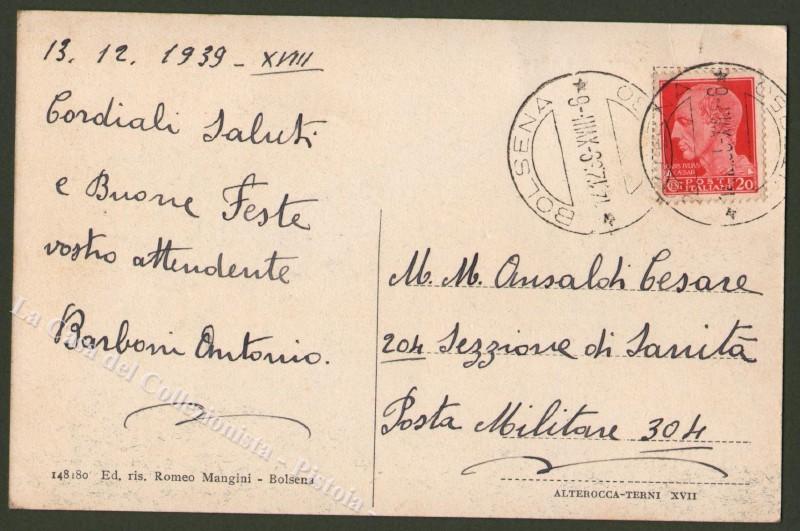 13. 12. 1939 - XVIII
Cordiali Saluti
e Buone Feste
vostro attendente
Barboni Antonio.
148180 Ed. ris. Romeo Mangini - Bolsena
BOLSENA
BOLSENA
POSTE
ITALIANE
20
M. M. Ansaldi Cesare
204 Sezzione di Sanità
Posta Militare 304
ALTEROCCA-TERNI XVII
La Casa del Collezionista - Pistoia